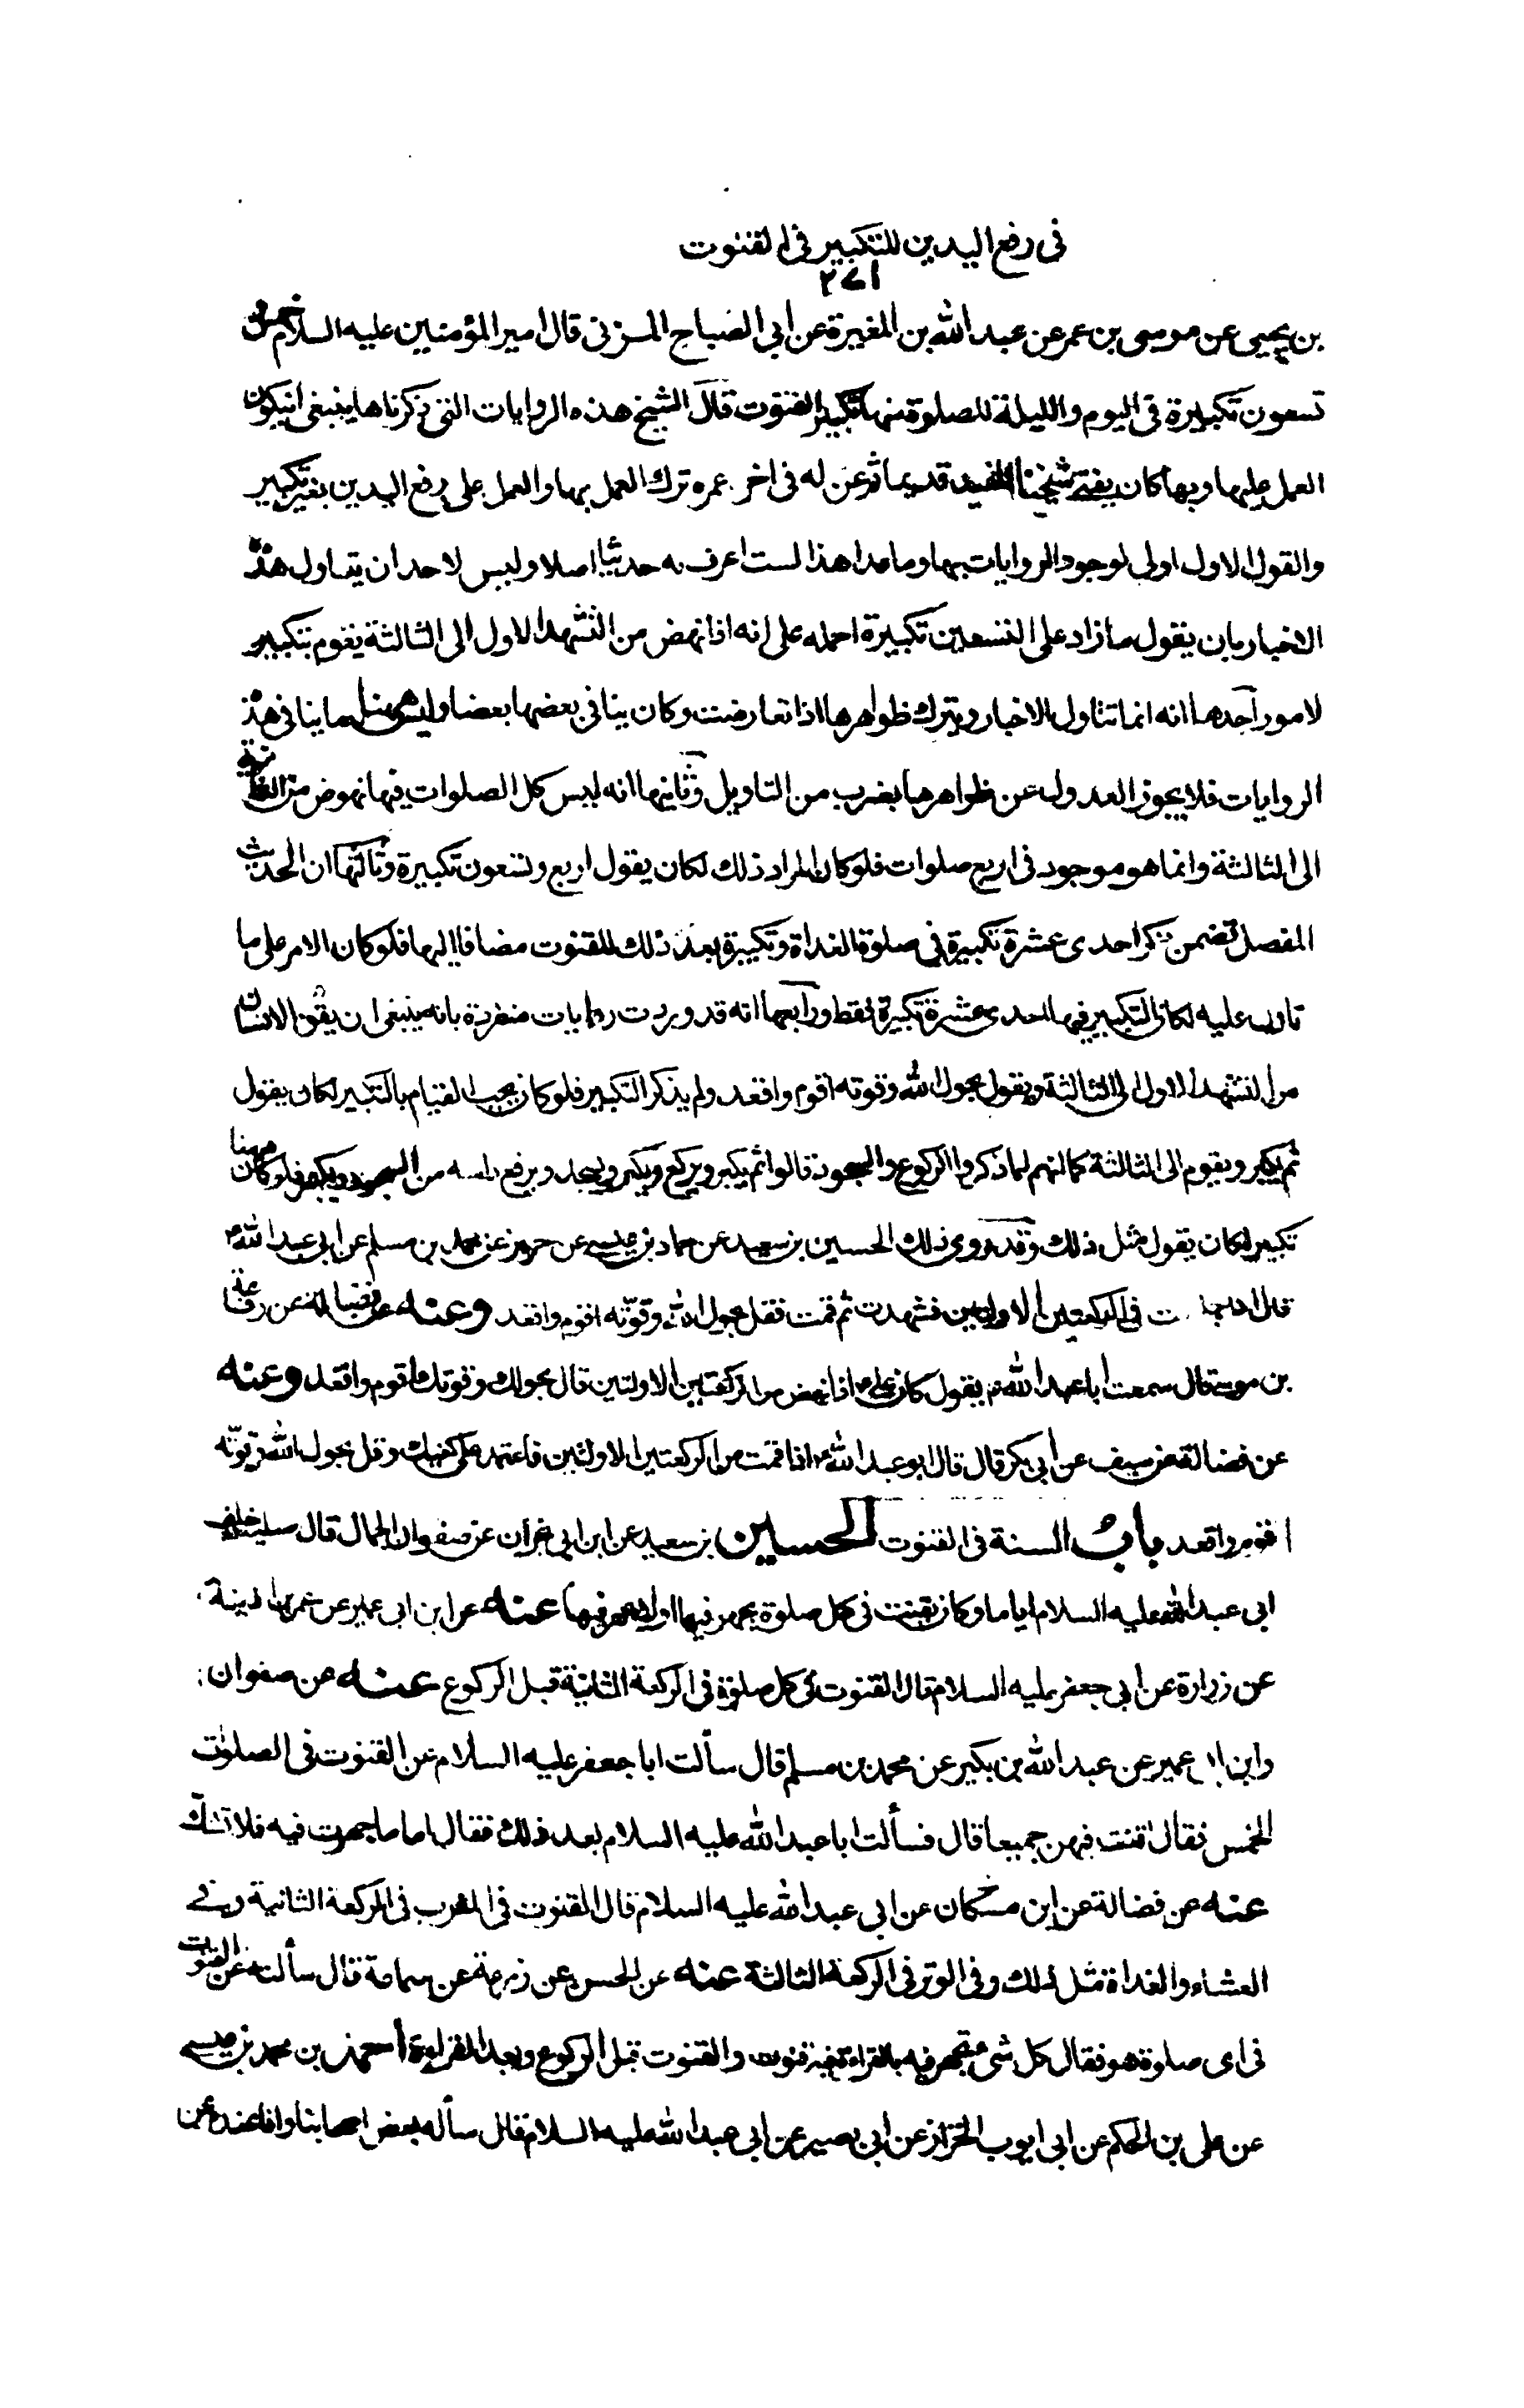 فى رفع اليدين للتكبير فى القنوت
٢٧١
بن يحيى عن موسى بن عمر عن عبد الله بن المغيرة عن ابى الصباح المزنى قال امير المؤمنين عليه السلام خمس و
تسعون تكبيرة فى اليوم والليلة للصلوة منها تكبير القنوت قال الشيخ هذه الروايات التى ذكرناها ينبغى انيكون
العمل عليها وبها كان يفتى شيخنا المفيد قديما ثم عن له فى اخر عمره ترك العمل بها والعمل على رفع اليدين بغير تكبير
والقول الاول اولى لوجود الروايات بها وما عدا هذا لست اعرف به حديثا اصلا وليس لاحد ان يتاول هذه
الاخبار بان يقول ما زاد على التسعين تكبيرة احمله على انه اذا نهض من التشهد الاول الى الثالثة يقوم بتكبير
لامور احدها انه انما تتناول الاخبار ويترك ظواهرها اذا تعارضت وكان ينافى بعضها بعضا وليس ههنا ما ينافى هذه
الروايات فلا يجوز العدول عن ظواهرها بضرب من التاويل وثانيها انه ليس كل الصلوات فيها نهوض من الثانية
الى الثالثة وانما هو موجود فى اربع صلوات فلو كان المراد ذلك لكان يقول اربع وتسعون تكبيرة وثالثها ان الحديث
المفصل تضمن ذكر احدى عشرة تكبيرة فى صلوة الغداة وتكبيرة بعد ذلك للقنوت مضافا اليها فلو كان الامر على ما
تاول عليه لكان التكبير فيها احدى عشرة تكبيرة فقط ورابعها انه قد وردت روايات منفردة بانه ينبغى ان يقوم الانسان
من التشهد الاول الى الثالثة ويقول بحول الله وقوته اقوم واقعد ولم يذكر التكبير فلو كان يجب القيام بالتكبير لكان يقول
ثم يكبر ويقوم الى الثالثة كما انهم لما ذكروا الركوع والسجود قالوا ثم يكبر ويركع ويكبر ويسجد ويرفع راسه من السجود ويكبر فلو كان ههنا
تكبير لكان يقول مثل ذلك وقد روى ذلك الحسين بن سعيد عن حماد بن عيسى عن حريز عن محمد بن مسلم عن ابى عبد الله ع
قال اذا جلست فى الركعتين الاولتين فتشهدت ثم قمت فقل بحول الله وقوّته اقوم واقعد وعنه عن فضالة عن رفاعة
بن موسى قال سمعت ابا عبد الله ع يقول كان على ع اذا نهض من الركعتين الاولتين قال بحولك وقوتك اقوم واقعد وعنه
عن فضالة عن سيف عن ابى بكر قال قال ابو عبد الله ع اذا قمت من الركعتين الاولتين فاعتمد على كفيك وقل بحول الله وقوّته
اقوم واقعد باب السنة فى القنوت الحسين بن سعيد عن ابن ابى نجران عن صفوان الجمال قال صليت خلف
ابى عبد الله عليه السلام اياما وكان يقنت فى كل صلوة يجهر فيها اولا يجهر فيها عنه عن ابن ابى عمير عن عمر بن اذينة
عن زرارة عن ابى جعفر عليه السلام قال القنوت فى كل صلوة فى الركعة الثانية قبل الركوع عنه عن صفوان
وابن ابى عمير عن عبد الله بن بكير عن محمد بن مسلم قال سألت ابا جعفر عليه السلام عن القنوت فى الصلوات
الخمس فقال اقنت فيهن جميعا قال فسألت ابا عبد الله عليه السلام بعد ذلك فقال اما ما جهرت فيه فلا تشكّ
عنه عن فضالة عن ابن مسكان عن ابى عبد الله عليه السلام قال القنوت فى المغرب فى الركعة الثانية وفى
العشاء والغداة مثل ذلك وفى الوتر فى الركعة الثالثة عنه عن الحسن عن زرعة عن سماعة قال سألته عن القنوت
فى اى صلوة هو فقال كل شئ يجهر فيه بالقراءة فيه قنوت والقنوت قبل الركوع وبعد القراءة احمد بن محمد بن عيسى
عن على بن الحكم عن ابى ايوب الخزاز عن ابى بصير عن ابى عبد الله عليه السلام قال سأله بعض اصحابنا وانا عنده عن